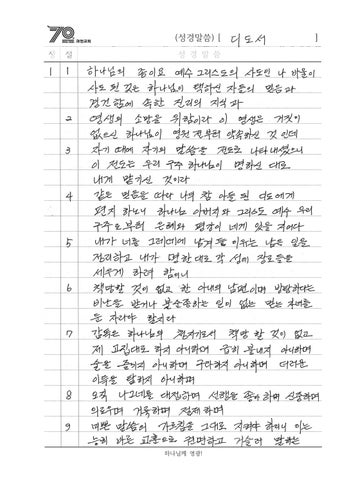 70 (성경말씀) [ 디도서 ]
장 절 성경말씀
1 1 하나님의 종이요 예수 그리스도의 사도인 나 바울이
사도 된 것은 하나님이 택하신 자들의 믿음과
경건함에 속한 진리의 지식과
2 영생의 소망을 위함이라 이 영생은 거짓이
없으신 하나님이 영원 전부터 약속하신 것인데
3 자기 때에 자기의 말씀을 전도로 나타내셨으니
이 전도는 우리 구주 하나님이 명하신 대로
내게 맡기신 것이라
4 같은 믿음을 따라 나의 참 아들 된 디도에게
편지 하노니 하나님 아버지와 그리스도 예수 우리
구주로부터 은혜와 평강이 네게 있을지어다
5 내가 너를 그레데에 남겨 둔 이유는 남은 일을
정리하고 내가 명한대로 각 성에 장로들을
세우게 하려 함이니
6 책망할 것이 없고 한 아내의 남편이며 방탕하다는
비난을 받거나 불순종하는 일이 없는 믿는 자녀를
둔 자라야 할지라
7 감독은 하나님의 청지기로서 책망할 것이 없고
제 고집대로 하지 아니하며 급히 분내지 아니하며
술을 즐기지 아니하며 구타하지 아니하며 더러운
이득을 탐하지 아니하며
8 오직 나그네를 대접하며 선행을 좋아하며 신중하며
의로우며 거룩하며 절제하며
9 미쁜 말씀의 가르침을 그대로 지켜야 하리니 이는
능히 바른 교훈으로 권면하고 거슬러 말하는
하나님께 영광!